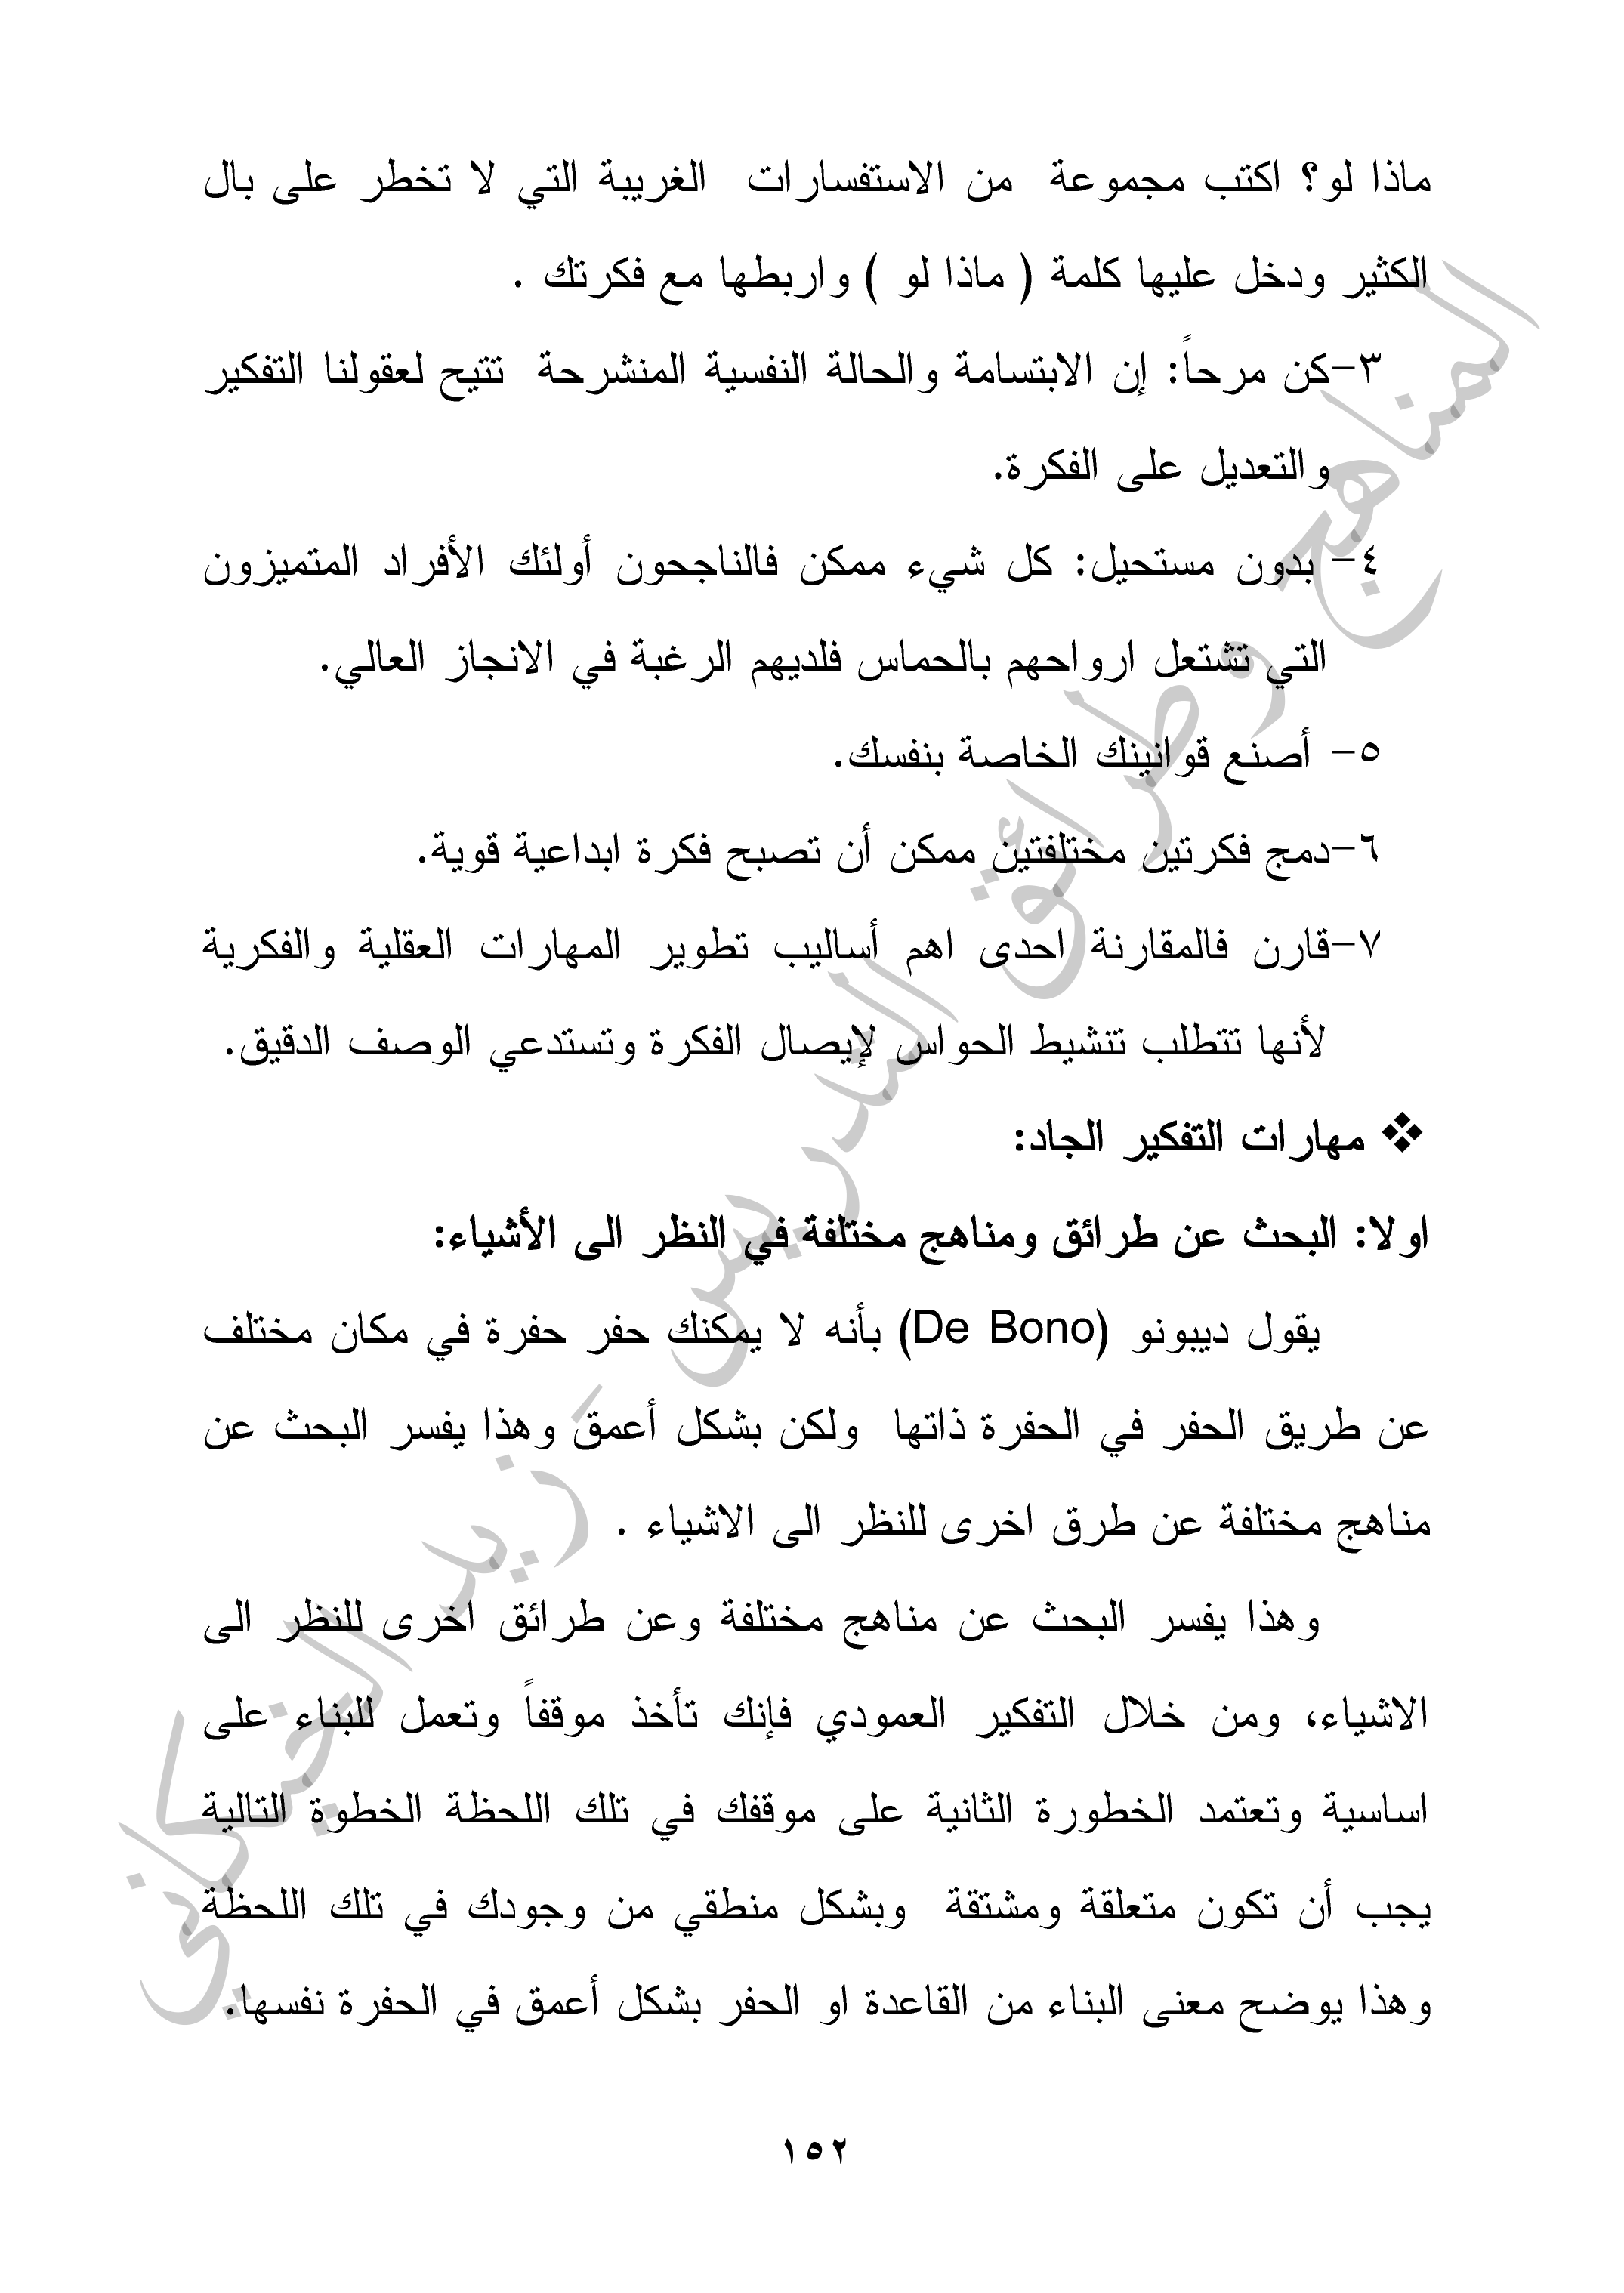 ماذا لو؟ اكتب مجموعة من الاستفسارات الغريبة التي لا تخطر على بال
الكثير ودخل عليها كلمة ( ماذا لو ) واربطها مع فكرتك .
٣-كن مرحاً: إن الابتسامة والحالة النفسية المنشرحة تتيح لعقولنا التفكير
والتعديل على الفكرة.
٤- بدون مستحيل: كل شيء ممكن فالناجحون أولئك الأفراد المتميزون
التي تشتعل ارواحهم بالحماس فلديهم الرغبة في الانجاز العالي.
٥- أصنع قوانينك الخاصة بنفسك.
٦-دمج فكرتين مختلفتين ممكن أن تصبح فكرة ابداعية قوية.
٧-قارن فالمقارنة احدى اهم أساليب تطوير المهارات العقلية والفكرية
لأنها تتطلب تنشيط الحواس لإيصال الفكرة وتستدعي الوصف الدقيق.
❖ مهارات التفكير الجاد:
اولا: البحث عن طرائق ومناهج مختلفة في النظر الى الأشياء:
يقول ديبونو (De Bono) بأنه لا يمكنك حفر حفرة في مكان مختلف
عن طريق الحفر في الحفرة ذاتها ولكن بشكل أعمق وهذا يفسر البحث عن
مناهج مختلفة عن طرق اخرى للنظر الى الاشياء .
وهذا يفسر البحث عن مناهج مختلفة وعن طرائق اخرى للنظر الى
الاشياء، ومن خلال التفكير العمودي فإنك تأخذ موقفاً وتعمل للبناء على
اساسية وتعتمد الخطورة الثانية على موقفك في تلك اللحظة الخطوة التالية
يجب أن تكون متعلقة ومشتقة وبشكل منطقي من وجودك في تلك اللحظة
وهذا يوضح معنى البناء من القاعدة او الحفر بشكل أعمق في الحفرة نفسها.
١٥٢
المناهج وطرائق التدريس - زيد الخيكاني